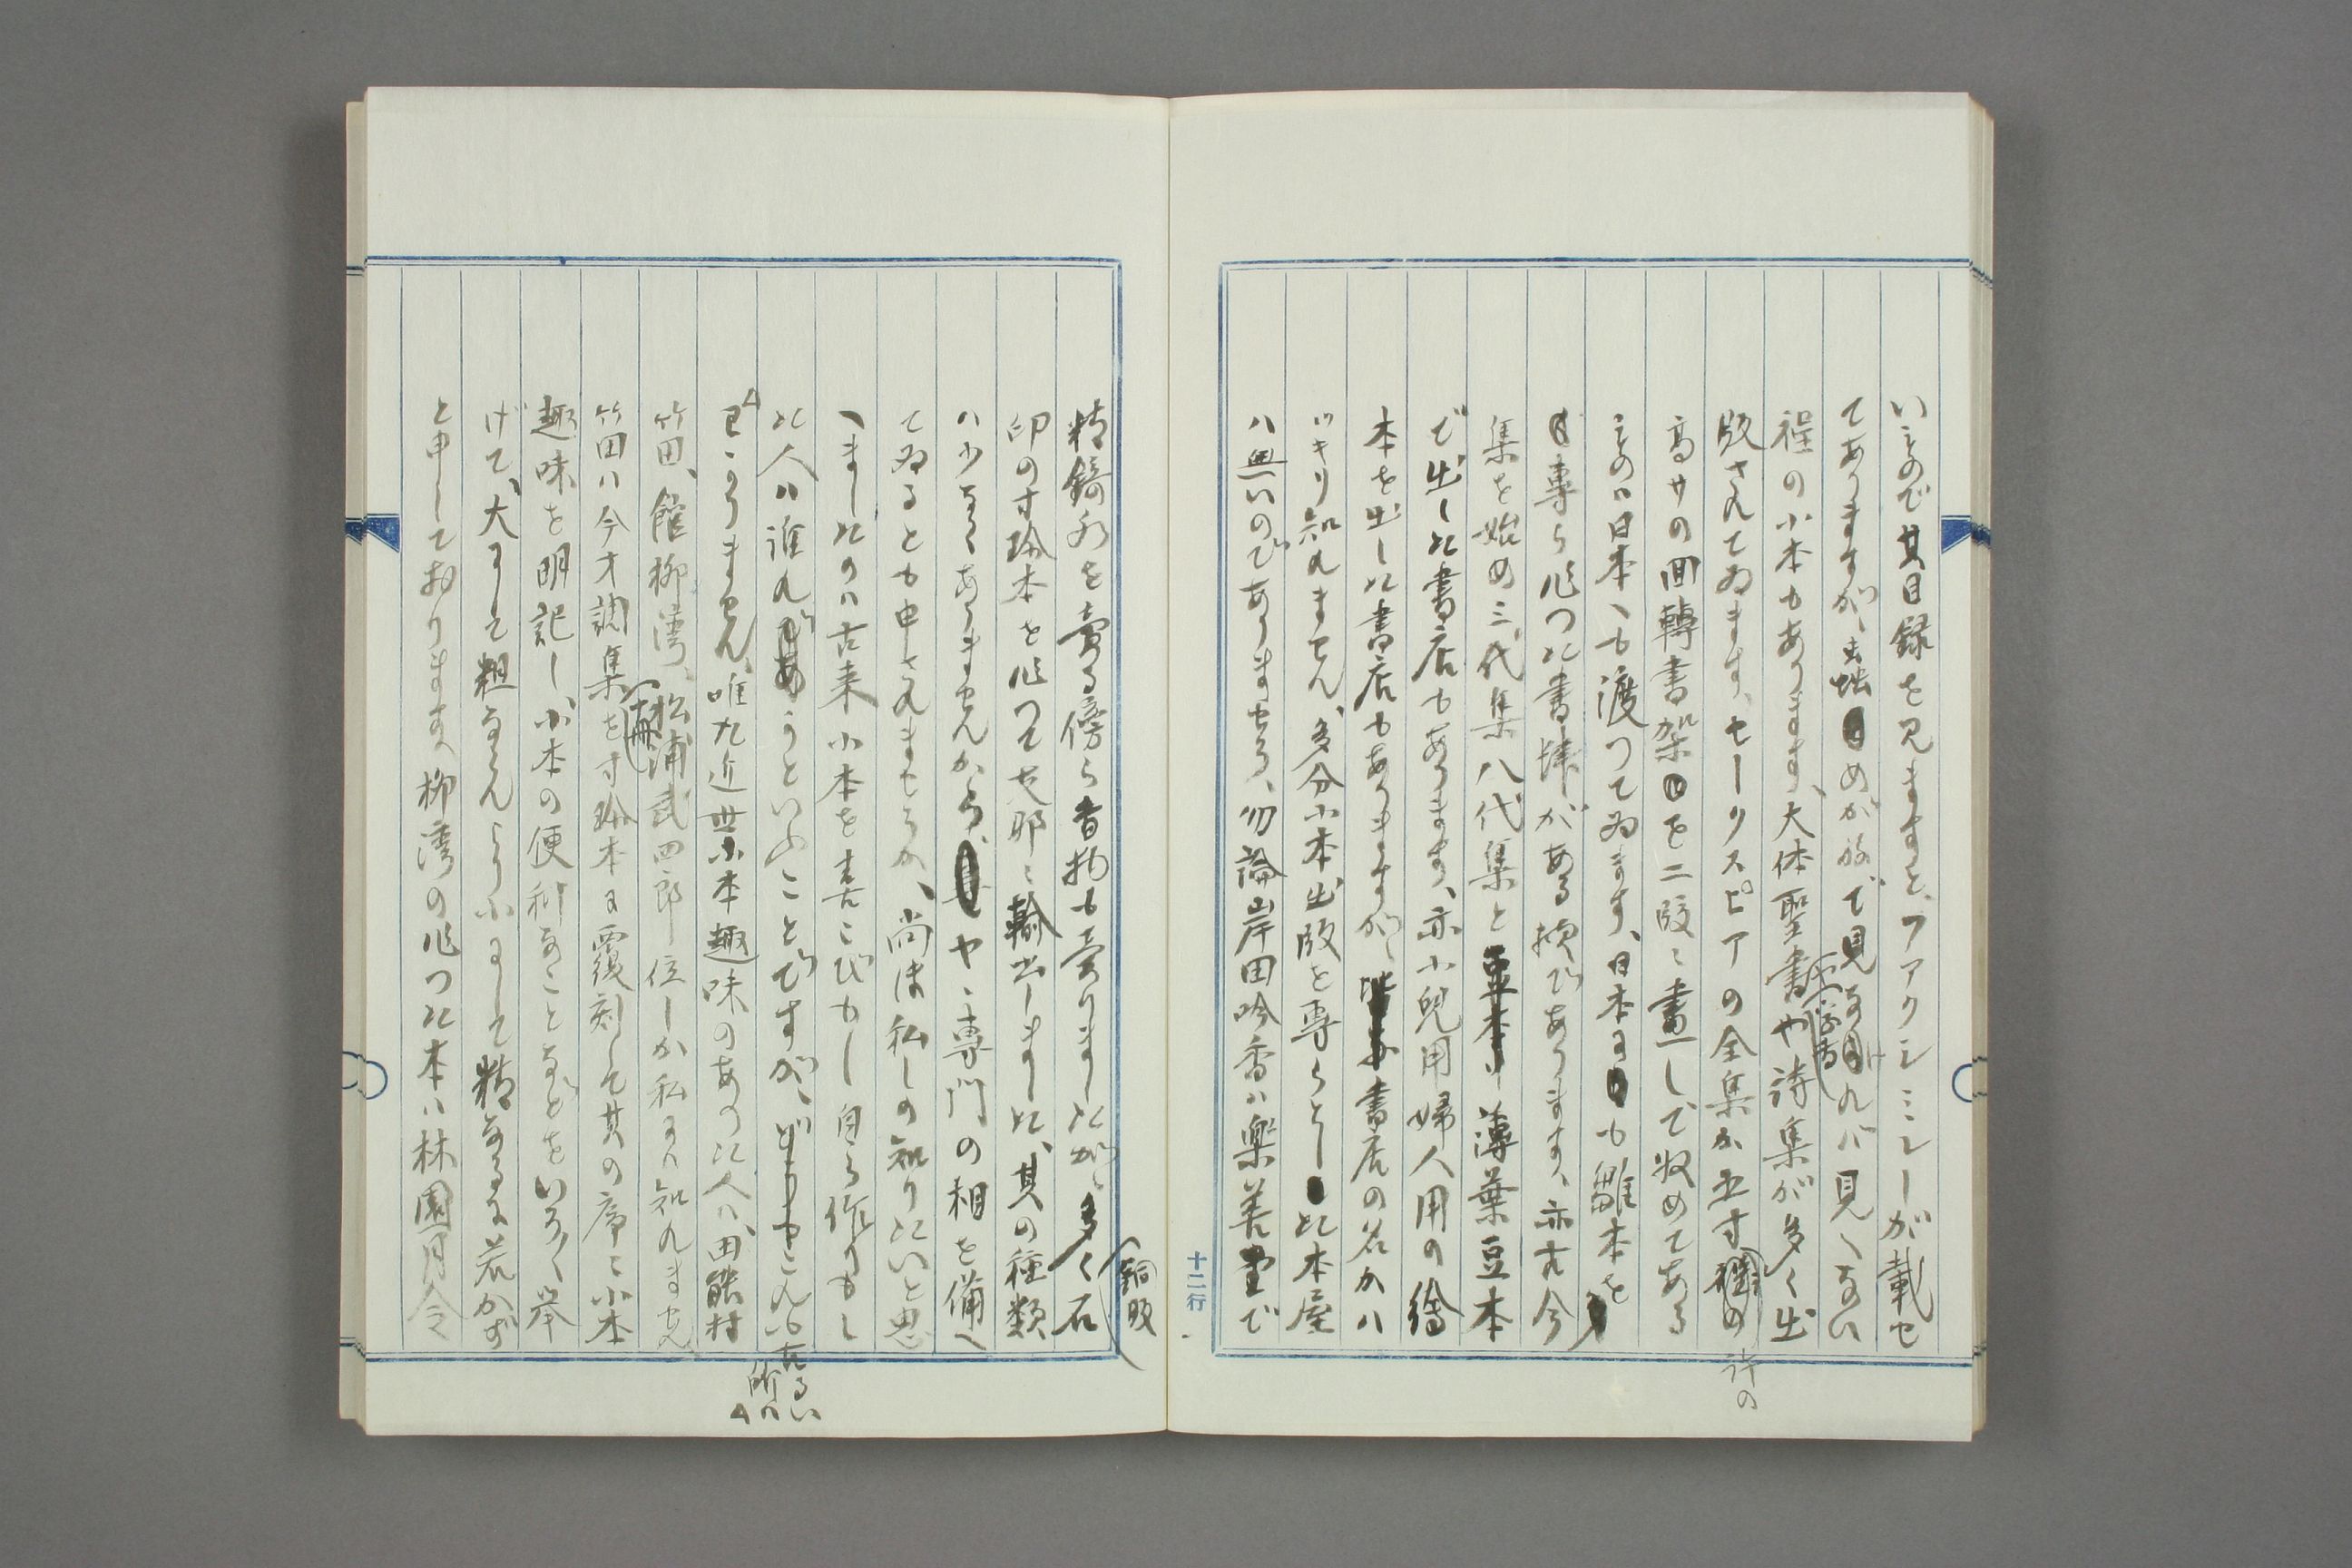 いもので其目録を見ますと、フアクシミレーが載せ
てありますが、虫蛇めがねで見なければ見へない
程の小本もあります、大体聖書や字書や詩集が多く出
版されてゐます、セークスピアの全集が五寸許の
高サの回轉書架を二段に畫して収めてある
ものは日本へも渡つてゐます、日本にも雛本を
専ら作つた書肆がある様であります、亦古今
集を始め三代集八代集と薄葉豆本
で出した書店もあります、亦小兒用婦人用の繪
本を出した書店もありますが、書店の名がハ
ツキリ知れません、多分小本出版を専らとした本屋
ハ無いのでありませう、勿論岸田吟香ハ樂善堂で
精錡水を賣る傍ら書物も賣りましたが、多く石
銅版
印の寸珍本を作つて支那に輸出しました、其の種類
ハ少なくありませんから、やゝ専門の相を備へ
てゐるとも申されませうか、尚ほ私しの知りたいと思
へましたのハ古来小本を喜こびもし自ら作りもし
た人ハ誰れであらうといふことですが、どうもこれも古るい
所ハ
わかりません、唯九近世小本趣味のあつた人ハ、田能村
竹田、館柳湾、松浦武四郎位しか私にハ知れません
竹田ハ今才調集を(十冊)寸珍本に覆刻して其の序に小本
趣味を明記し、小本の便利なことなどをいろ〱挙
げて、大にして粗ならんより小にして精なるに若かず
と申しております、柳湾の作つた本ハ林園月令
十二行